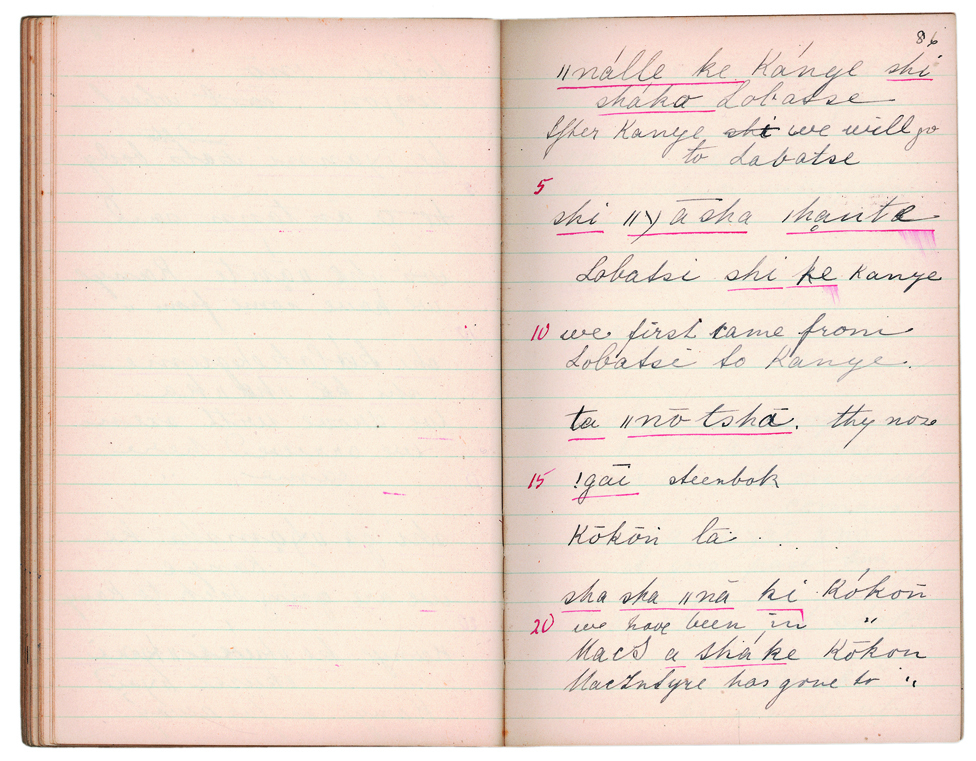 86
"nálle ke Kánye shi
sháka Lobatse
After Kanye shi we will go
to Labatse
5
shi āsha
Lobatsi shi ke Kanye
10 we first came from
Lobatsi to Kanye.
ta "nōtshā. thy nose
15 !gāī steenbok
Kōkōn ta
sha sha "nā ki Kókōn
20 we have been in "
MacI a sháke Kōkon
MacIntyre has gone to "